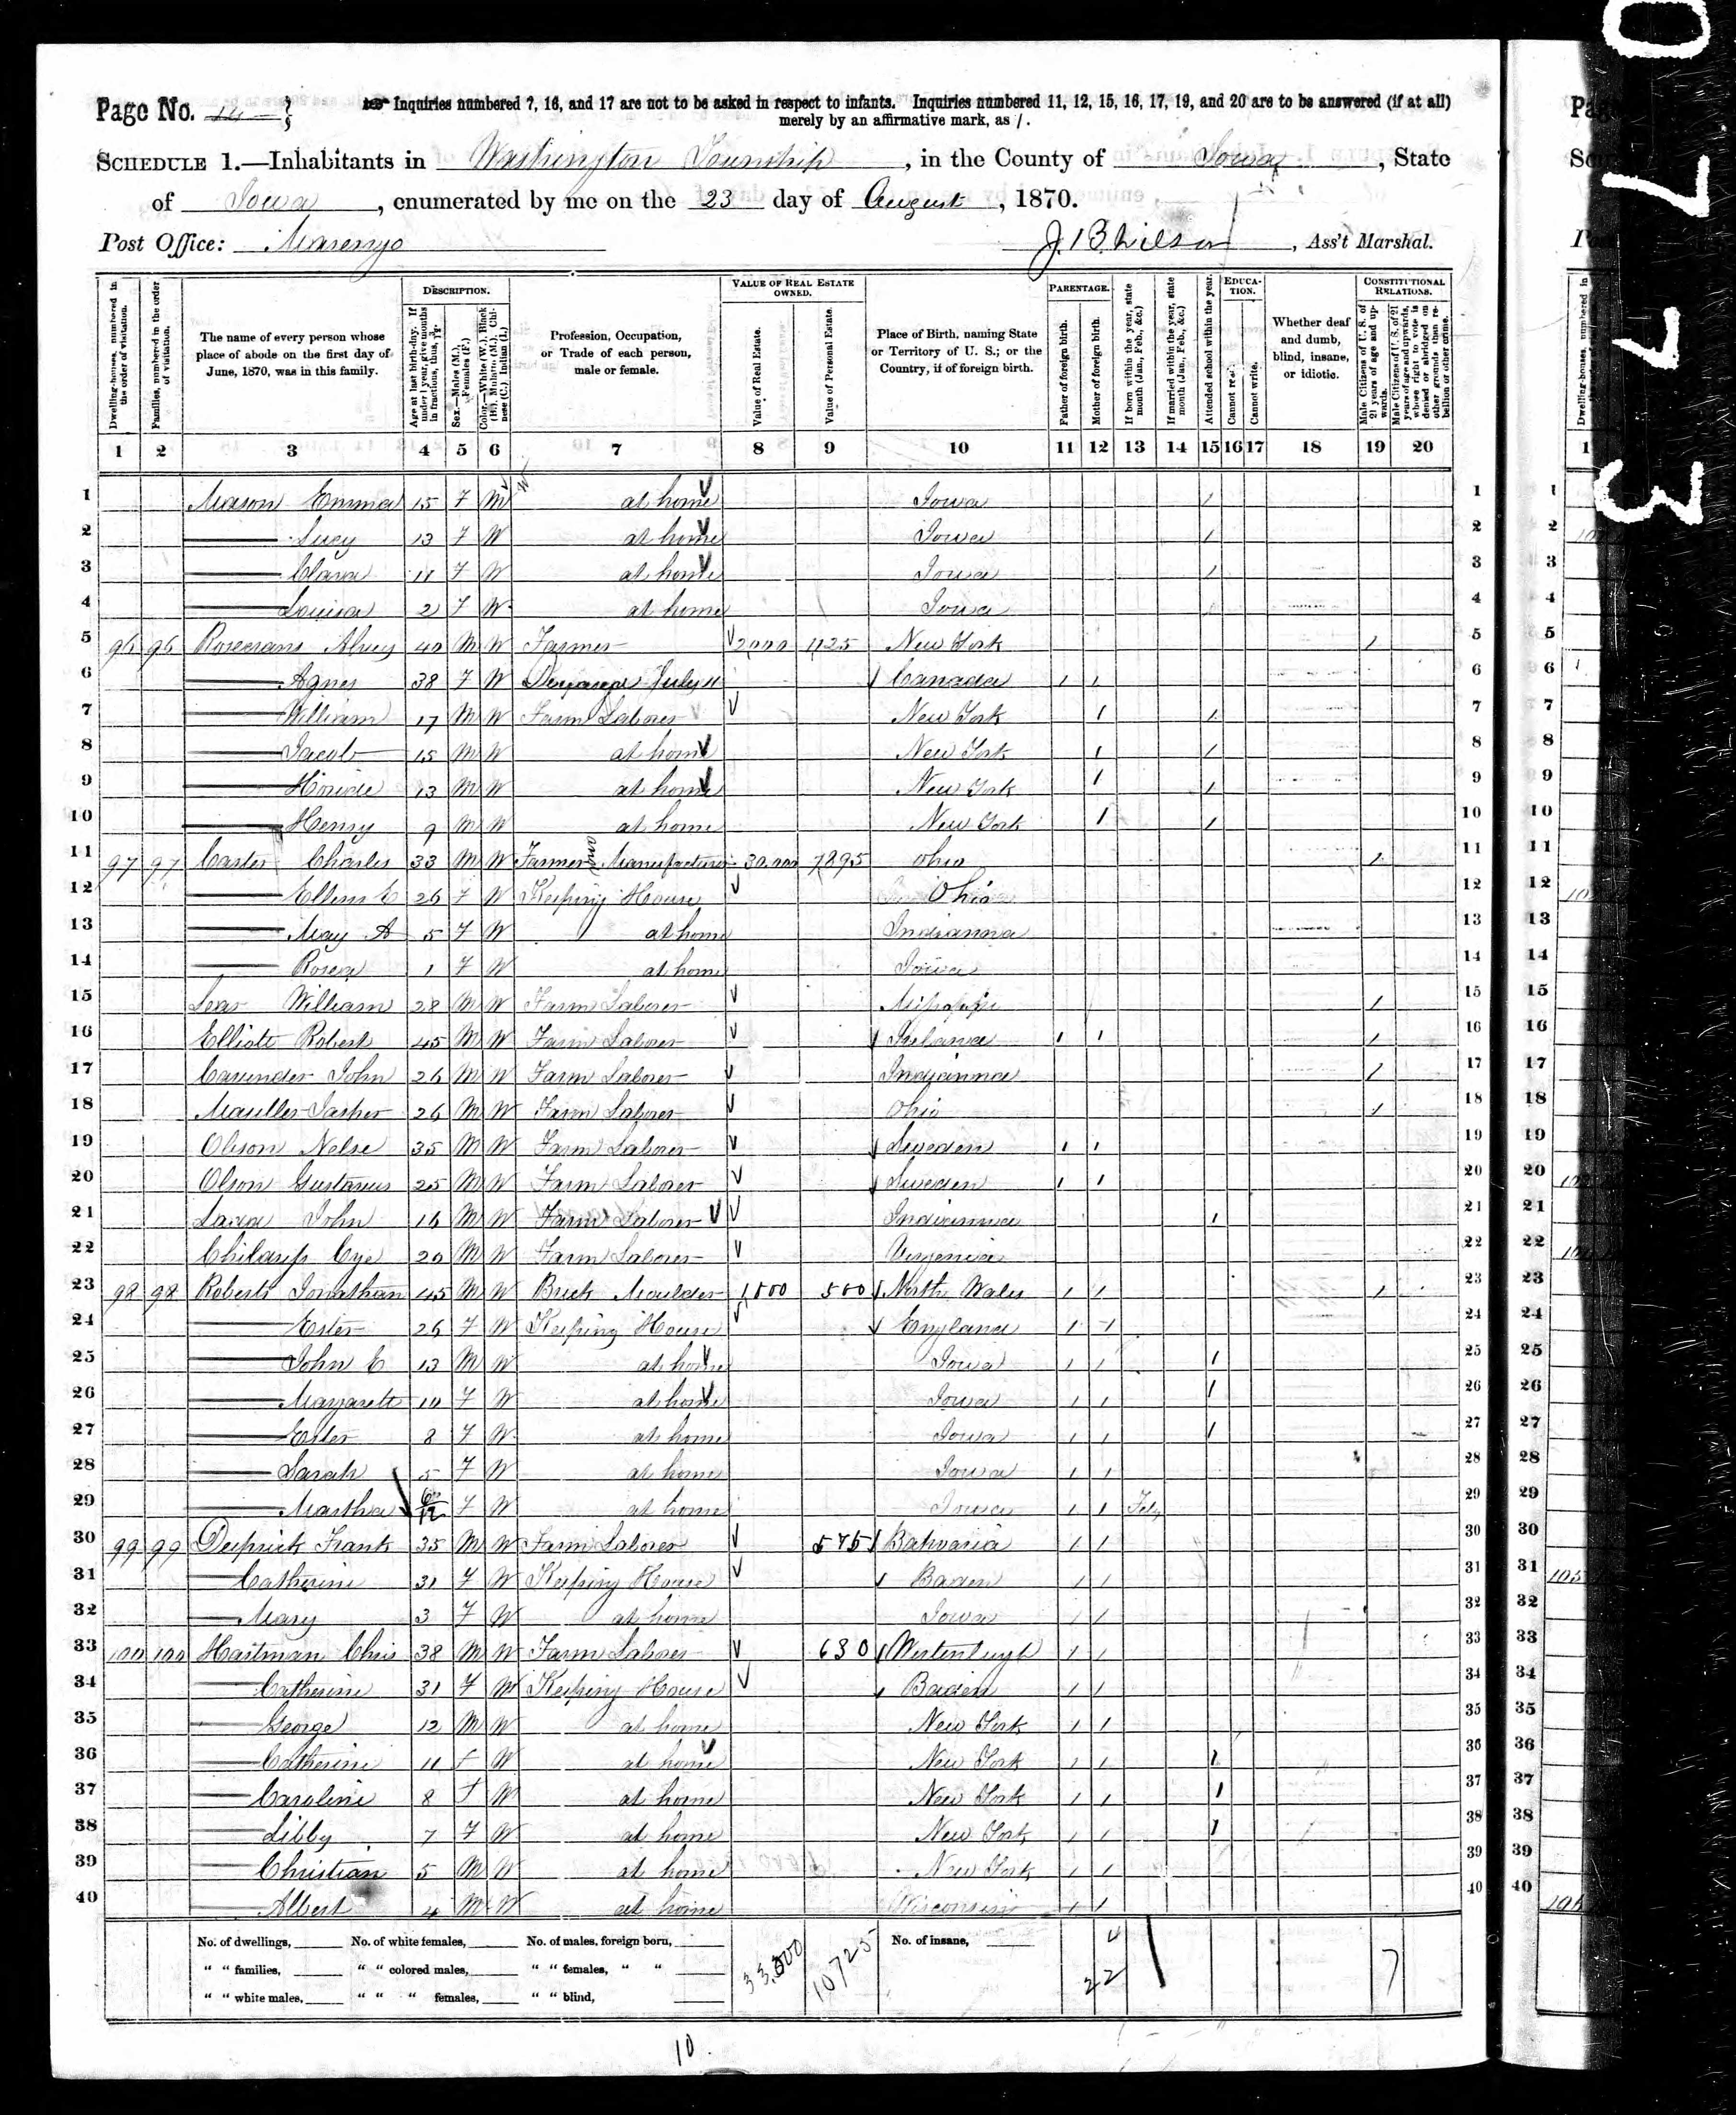 Page No.
Inquiries numbered 7, 16, and 17 are not to be asked in respect to infants. Inquiries numbered 11, 12, 15, 16, 17, 19, and 20 are to be answered (if at all)
merely by an affirmative mark, as /.
SCHEDULE 1.—Inhabitants in Washington Township, in the County of Iowa, State
of Iowa, enumerated by me on the 23 day of August, 1870.
Post Office: Marengo J B Wilson, Ass't Marshal.
Dwelling-houses, numbered in the order of visitation.
Families, numbered in the order of visitation.
The name of every person whose place of abode on the first day of June, 1870, was in this family.
DESCRIPTION.
Age at last birth-day. If under 1 year, give months in fractions, thus, 3/12.
Sex.—Males (M.), Females (F.)
Color.—White (W.), Black (B.), Mulatto (M.), Chinese (C.), Indian (I.)
Profession, Occupation, or Trade of each person, male or female.
VALUE OF REAL ESTATE OWNED.
Value of Real Estate.
Value of Personal Estate.
Place of Birth, naming State or Territory of U. S.; or the Country, if of foreign birth.
PARENTAGE.
Father of foreign birth.
Mother of foreign birth.
If born within the year, state month (Jan., Feb., &c.)
If married within the year, state month (Jan., Feb., &c.)
Attended school within the year.
EDUCATION.
Cannot read.
Cannot write.
Whether deaf and dumb, blind, insane, or idiotic.
CONSTITUTIONAL RELATIONS.
Male Citizens of U. S. of 21 years of age and upwards.
Male Citizens of U. S. of 21 years of age and upwards, whose right to vote is denied or abridged on other grounds than rebellion or other crime.
1 2 3 4 5 6 7 8 9 10 11 12 13 14 15 16 17 18 19 20
1 Mason Emma 15 F at home Iowa / 1
2 Lucy 13 F W at home Iowa / 2
3 Clara 11 F W at home Iowa / 3
4 Louisa 2 F W at home Iowa 4
5 96 96 Rosecrans 40 M W Farmer 2,000 1125 New York / 5
6 Agnes 38 F W July 11 Canada / / 6
7 William 17 M W Farm Laborer New York / / 7
8 Jacob 15 M W at home New York / / 8
9 13 M W at home New York / / 9
10 Henry 9 M W at home New York / / 10
11 97 97 Carter Charles 33 M W Farmer and Manufacturer 30,000 7895 Ohio / 11
12 Ellen E 26 F W Keeping House Ohio 12
13 May A 5 F W at home Indianna 13
14 Rosea 1 F W at home Iowa 14
15 William 28 M W Farm Laborer / 15
16 Elliott Robert 45 M W Farm Laborer Ireland / / / 16
17 Cavender John 26 M W Farm Laborer Indianna / 17
18 26 M W Farm Laborer Ohio / 18
19 Olson Nelse 35 M W Farm Laborer Sweden / / 19
20 Olson Gustavus 25 M W Farm Laborer Sweden / / 20
21 John 16 M W Farm Laborer Indianna / 21
22 20 M W Farm Laborer Virgenia 22
23 98 98 Roberts Jonathan 45 M W Brick Moulder 1,000 500 North Wales / / / 23
24 Ester 26 F W Keeping House England / / 24
25 John E 13 M W at home Iowa / / / 25
26 Margarett 10 F W at home Iowa / / / 26
27 Ester 8 F W at home Iowa / / / 27
28 Sarah 5 F W at home Iowa / / 28
29 Martha 6/12 F W at home Iowa / / Feb 29
30 99 99 Frank 35 M W Farm Laborer 575 Bahvaria / / 30
31 Catherine 31 F W Keeping House Baden / / 31
32 Mary 3 F W at home Iowa / / 32
33 100 100 Hartman Chris 38 M W Farm Laborer 630 / / 33
34 Catherine 31 F W Keeping House Baden / / 34
35 George 12 M W at home New York / / 35
36 Catherine 11 F W at home New York / / / 36
37 Caroline 8 F W at home New York / / / 37
38 Libby 7 F W at home New York / / / 38
39 Christian 5 M W at home New York / / 39
40 Albert 4 M W at home Wisconsin / / 40
No. of dwellings, No. of white females, No. of males, foreign born, 33,000 10725 No. of insane,
" " families, " " colored males, " " females, " " 22 7
" " white males, " " " females, " " blind,
10